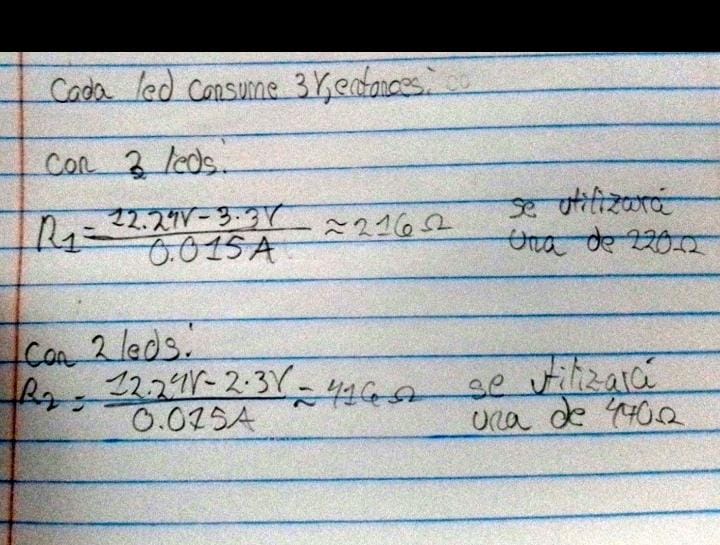 Cada led consume 3V, entonces:
con 3 leds:
R1 = 12.24V - 3·3V / 0.015A ≈ 216Ω se utilizará una de 220Ω
con 2 leds:
R2 = 12.24V - 2·3V / 0.015A ≈ 416Ω se utilizará una de 440Ω